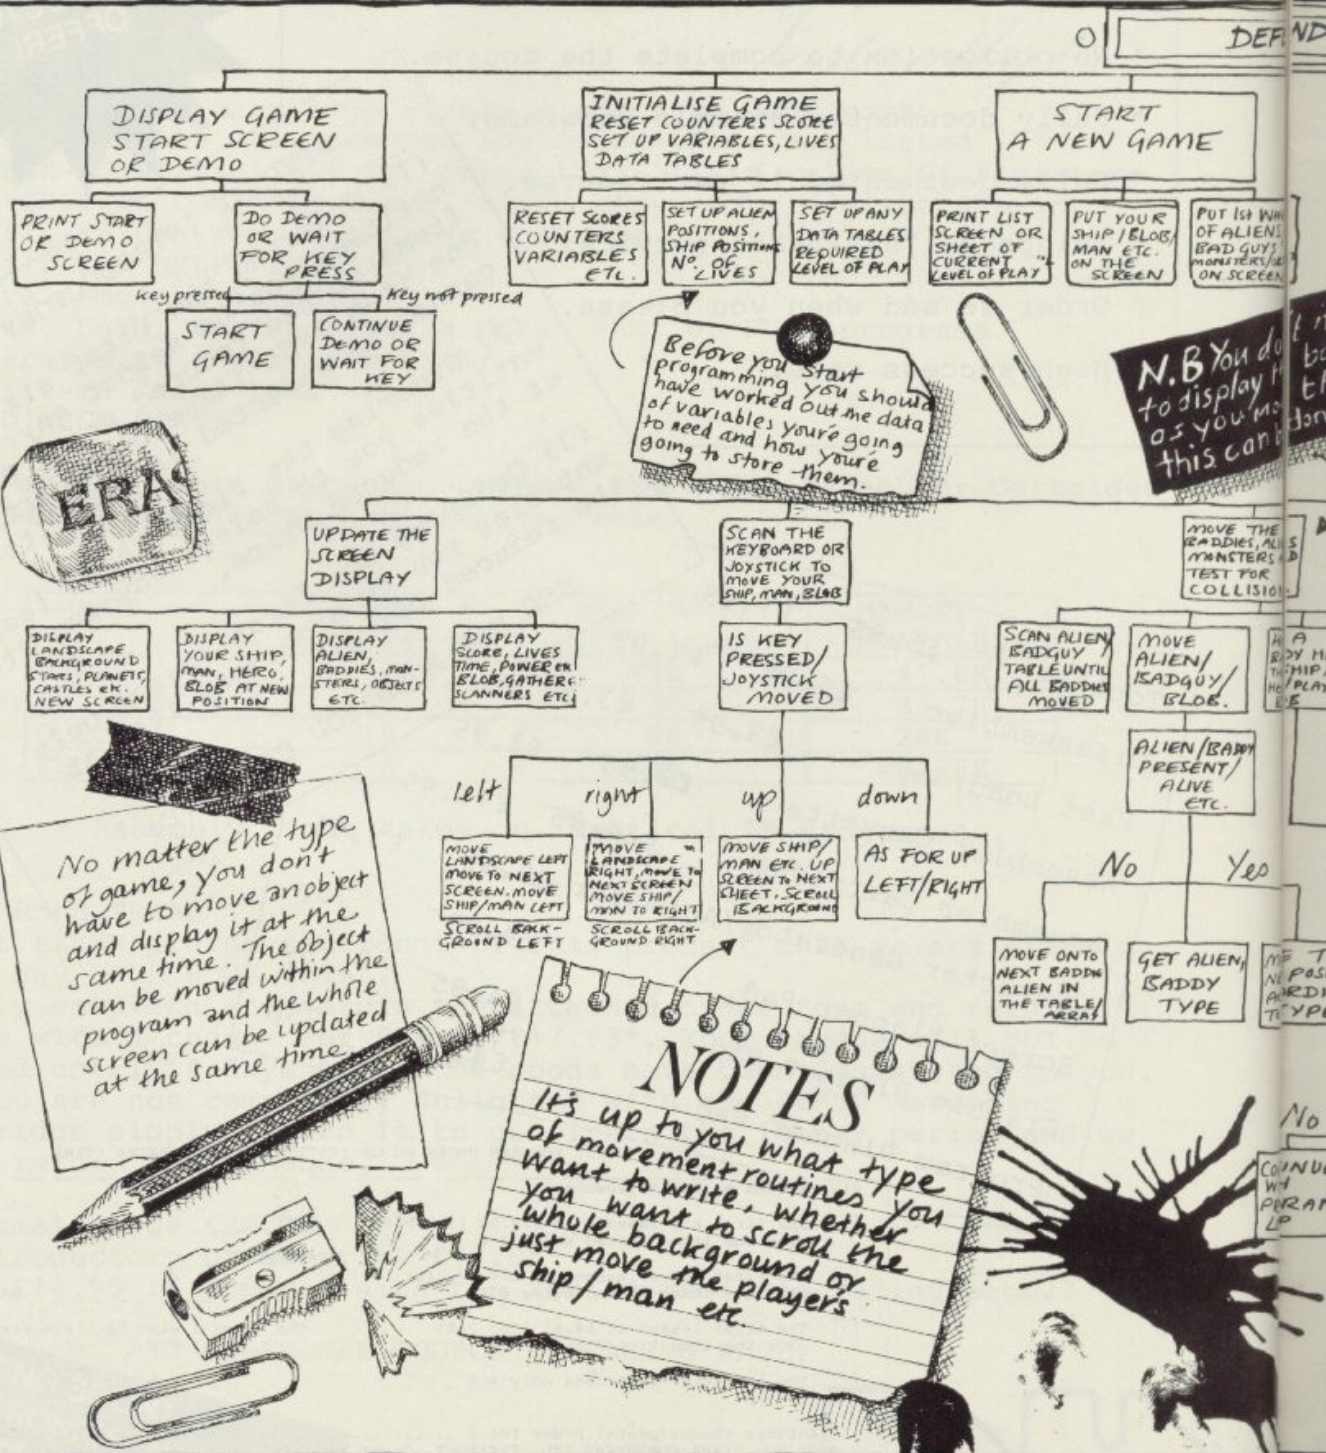 DEFEND
DISPLAY GAME
START SCREEN
OR DEMO
INITIALISE GAME
RESET COUNTERS SCORE
SET UP VARIABLES, LIVES
DATA TABLES
START
A NEW GAME
PRINT START
OR DEMO
SCREEN
DO DEMO
OR WAIT
FOR KEY
PRESS
RESET SCORES
COUNTERS
VARIABLES
ETC.
SET UP ALIEN
POSITIONS,
SHIP POSITIONS
No. OF
LIVES
SET UP ANY
DATA TABLES
REQUIRED
LEVEL OF PLAY
PRINT LIST
SCREEN OR
SHEET OF
CURRENT
LEVEL OF PLAY
PUT YOUR
SHIP/BLOB/
MAN ETC.
ON THE
SCREEN
PUT 1st
OF ALIENS
BAD GUYS
MONSTERS/
ON SCREEN
key pressed
key not pressed
START
GAME
CONTINUE
DEMO OR
WAIT FOR
KEY
Before you start
programming you should
have worked out the data
of variables you're going
to need and how you're
going to store them.
N.B You do
to display
as you mo
this can
ERAS
UPDATE THE
SCREEN
DISPLAY
SCAN THE
KEYBOARD OR
JOYSTICK TO
MOVE YOUR
SHIP, MAN, BLOB
MOVE THE
BADDIES,
MONSTERS
TEST FOR
COLLISION
DISPLAY
LANDSCAPE
BACKGROUND
STARS, PLANETS,
CASTLES etc.
NEW SCREEN
DISPLAY
YOUR SHIP,
MAN, HERO,
BLOB AT NEW
POSITION
DISPLAY
ALIEN,
BADDIES, MON-
STERS, OBJECTS
ETC.
DISPLAY
SCORE, LIVES
TIME, POWER
BLOB, GATHER
SCANNERS ETC
IS KEY
PRESSED/
JOYSTICK
MOVED
SCAN ALIEN/
BADGUY
TABLE UNTIL
ALL BADDIES
MOVED
MOVE
ALIEN/
BADGUY/
BLOB.
ALIEN/BADDY
PRESENT/
ALIVE
ETC.
left
right
up
down
MOVE
LANDSCAPE LEFT
MOVE TO NEXT
SCREEN. MOVE
SHIP/MAN LEFT
SCROLL BACK-
GROUND LEFT
MOVE
LANDSCAPE
RIGHT, MOVE TO
NEXT SCREEN
MOVE SHIP/
MAN TO RIGHT
SCROLL BACK-
GROUND RIGHT
MOVE SHIP/
MAN ETC. UP
SCREEN TO NEXT
SHEET, SCROLL
BACKGROUND
AS FOR UP
LEFT/RIGHT
No
Yes
MOVE ONTO
NEXT BADDIE
ALIEN IN
THE TABLE/
ARRAY
GET ALIEN,
BADDY
TYPE
No matter the type
of game, you don't
have to move an object
and display it at the
same time. The object
can be moved within the
program and the whole
screen can be updated
at the same time.
NOTES
It's up to you what type
of movement routines you
want to write, whether
you want to scroll the
whole background or
just move the player's
ship/man etc.
No